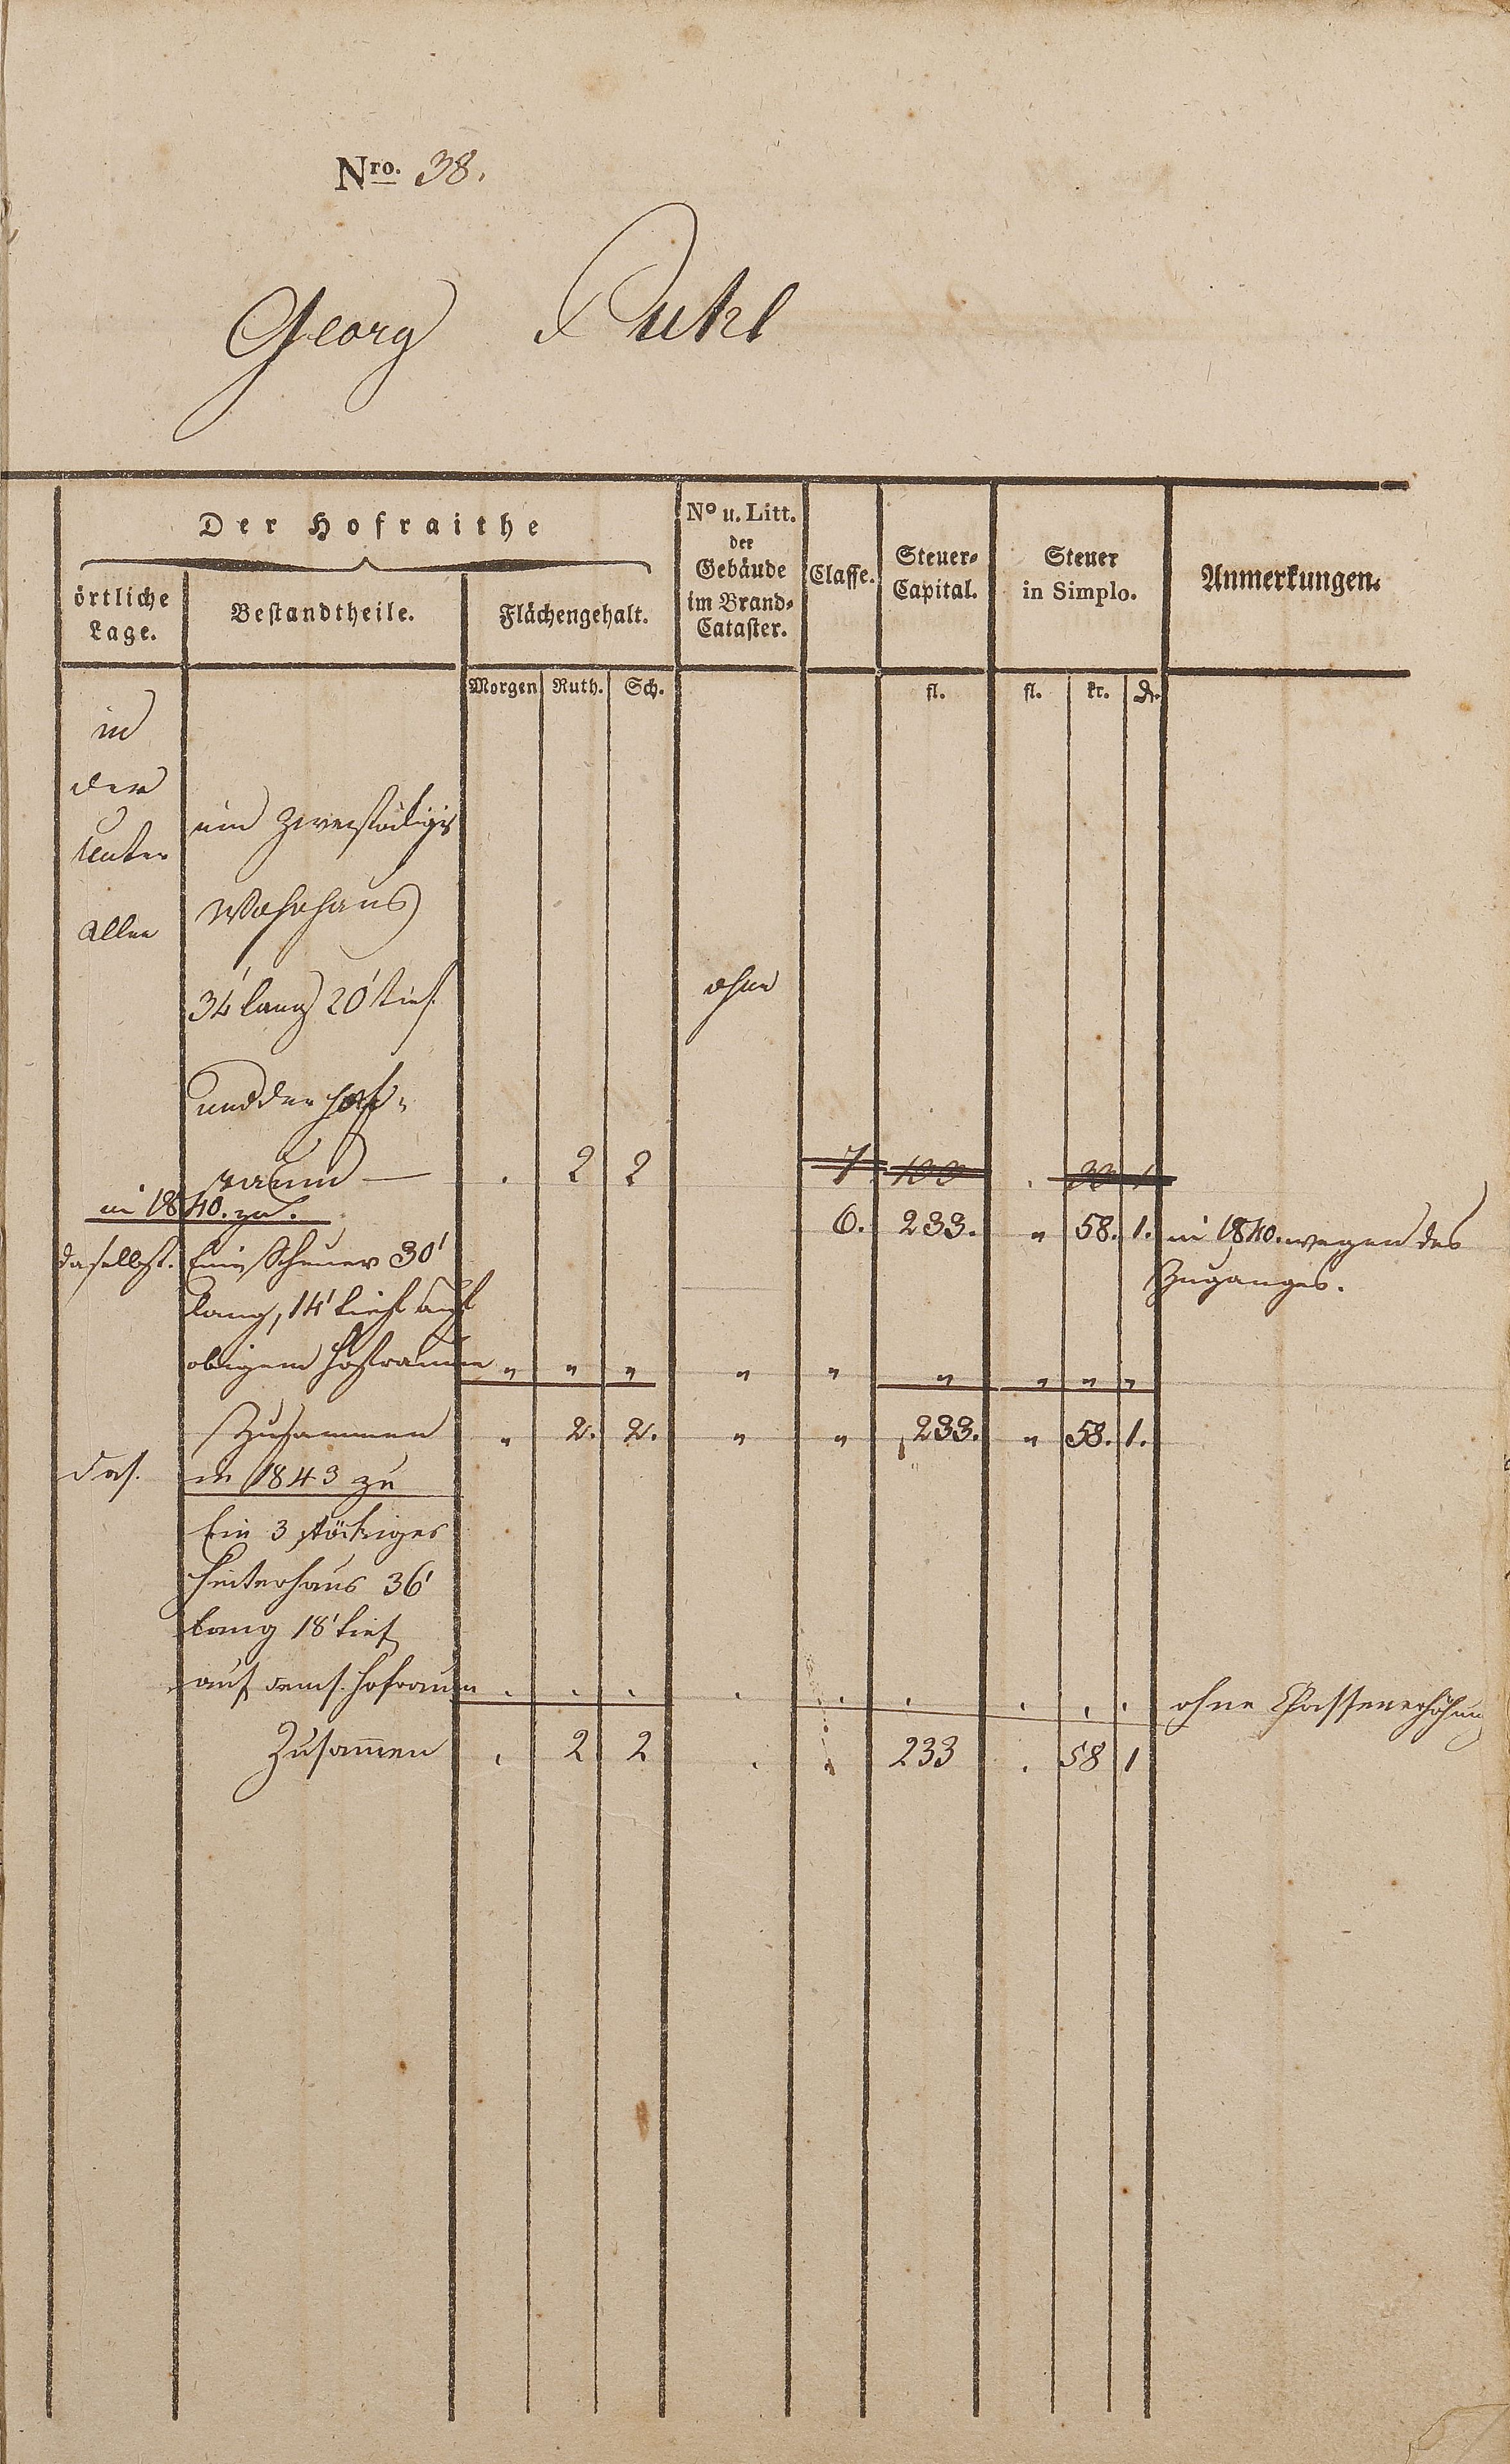 Nro. 38.
Georg Ruhl
Der Hofraithe
örtliche Lage.
Bestandtheile.
Flächengehalt.
Nº u. Litt. der Gebäude im Brand-Cataster.
Classe.
Steuer-Capital.
Steuer in Simplo.
Anmerkungen.
Morgen Ruth. Sch. fl. fl. kr. d.
in
der
Unter
allee
ein zweistöckiges
Wohnhaus
34' lang 20' tief
ohne
und der Hof-
raum — . 2 2 7. . 1
in 1840. zu.
6. 233. " 58. 1. in 1840. wegen des
Zuganges.
daselbst. Eine Scheuer 30'
lang, 14' tief auf
obigem Hofraume " " " " " " " " "
Zusammen " 2. 2. " " 233. " 58. 1.
das. in 1843 zu
Ein 3 stöckiges
Hinterhaus 36'
lang 18' tief
auf dems. Hofraum . . . . . . . . . ohne Classenerhöhung
Zusammen . 2 2 . . 233 . 58 1